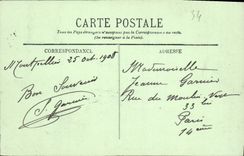 54
CARTE POSTALE
Tous les Pays étrangers n'acceptent pas la Correspondance au recto.
(Se renseigner à la Poste).
CORRESPONDANCE
ADRESSE
Montpellier 25 Oct. 1908
Bon Souvenir
J. Garnier
Mademoiselle
Jeanne Garnier
Rue du Moulin Vert
33 bis
Paris
14 ème